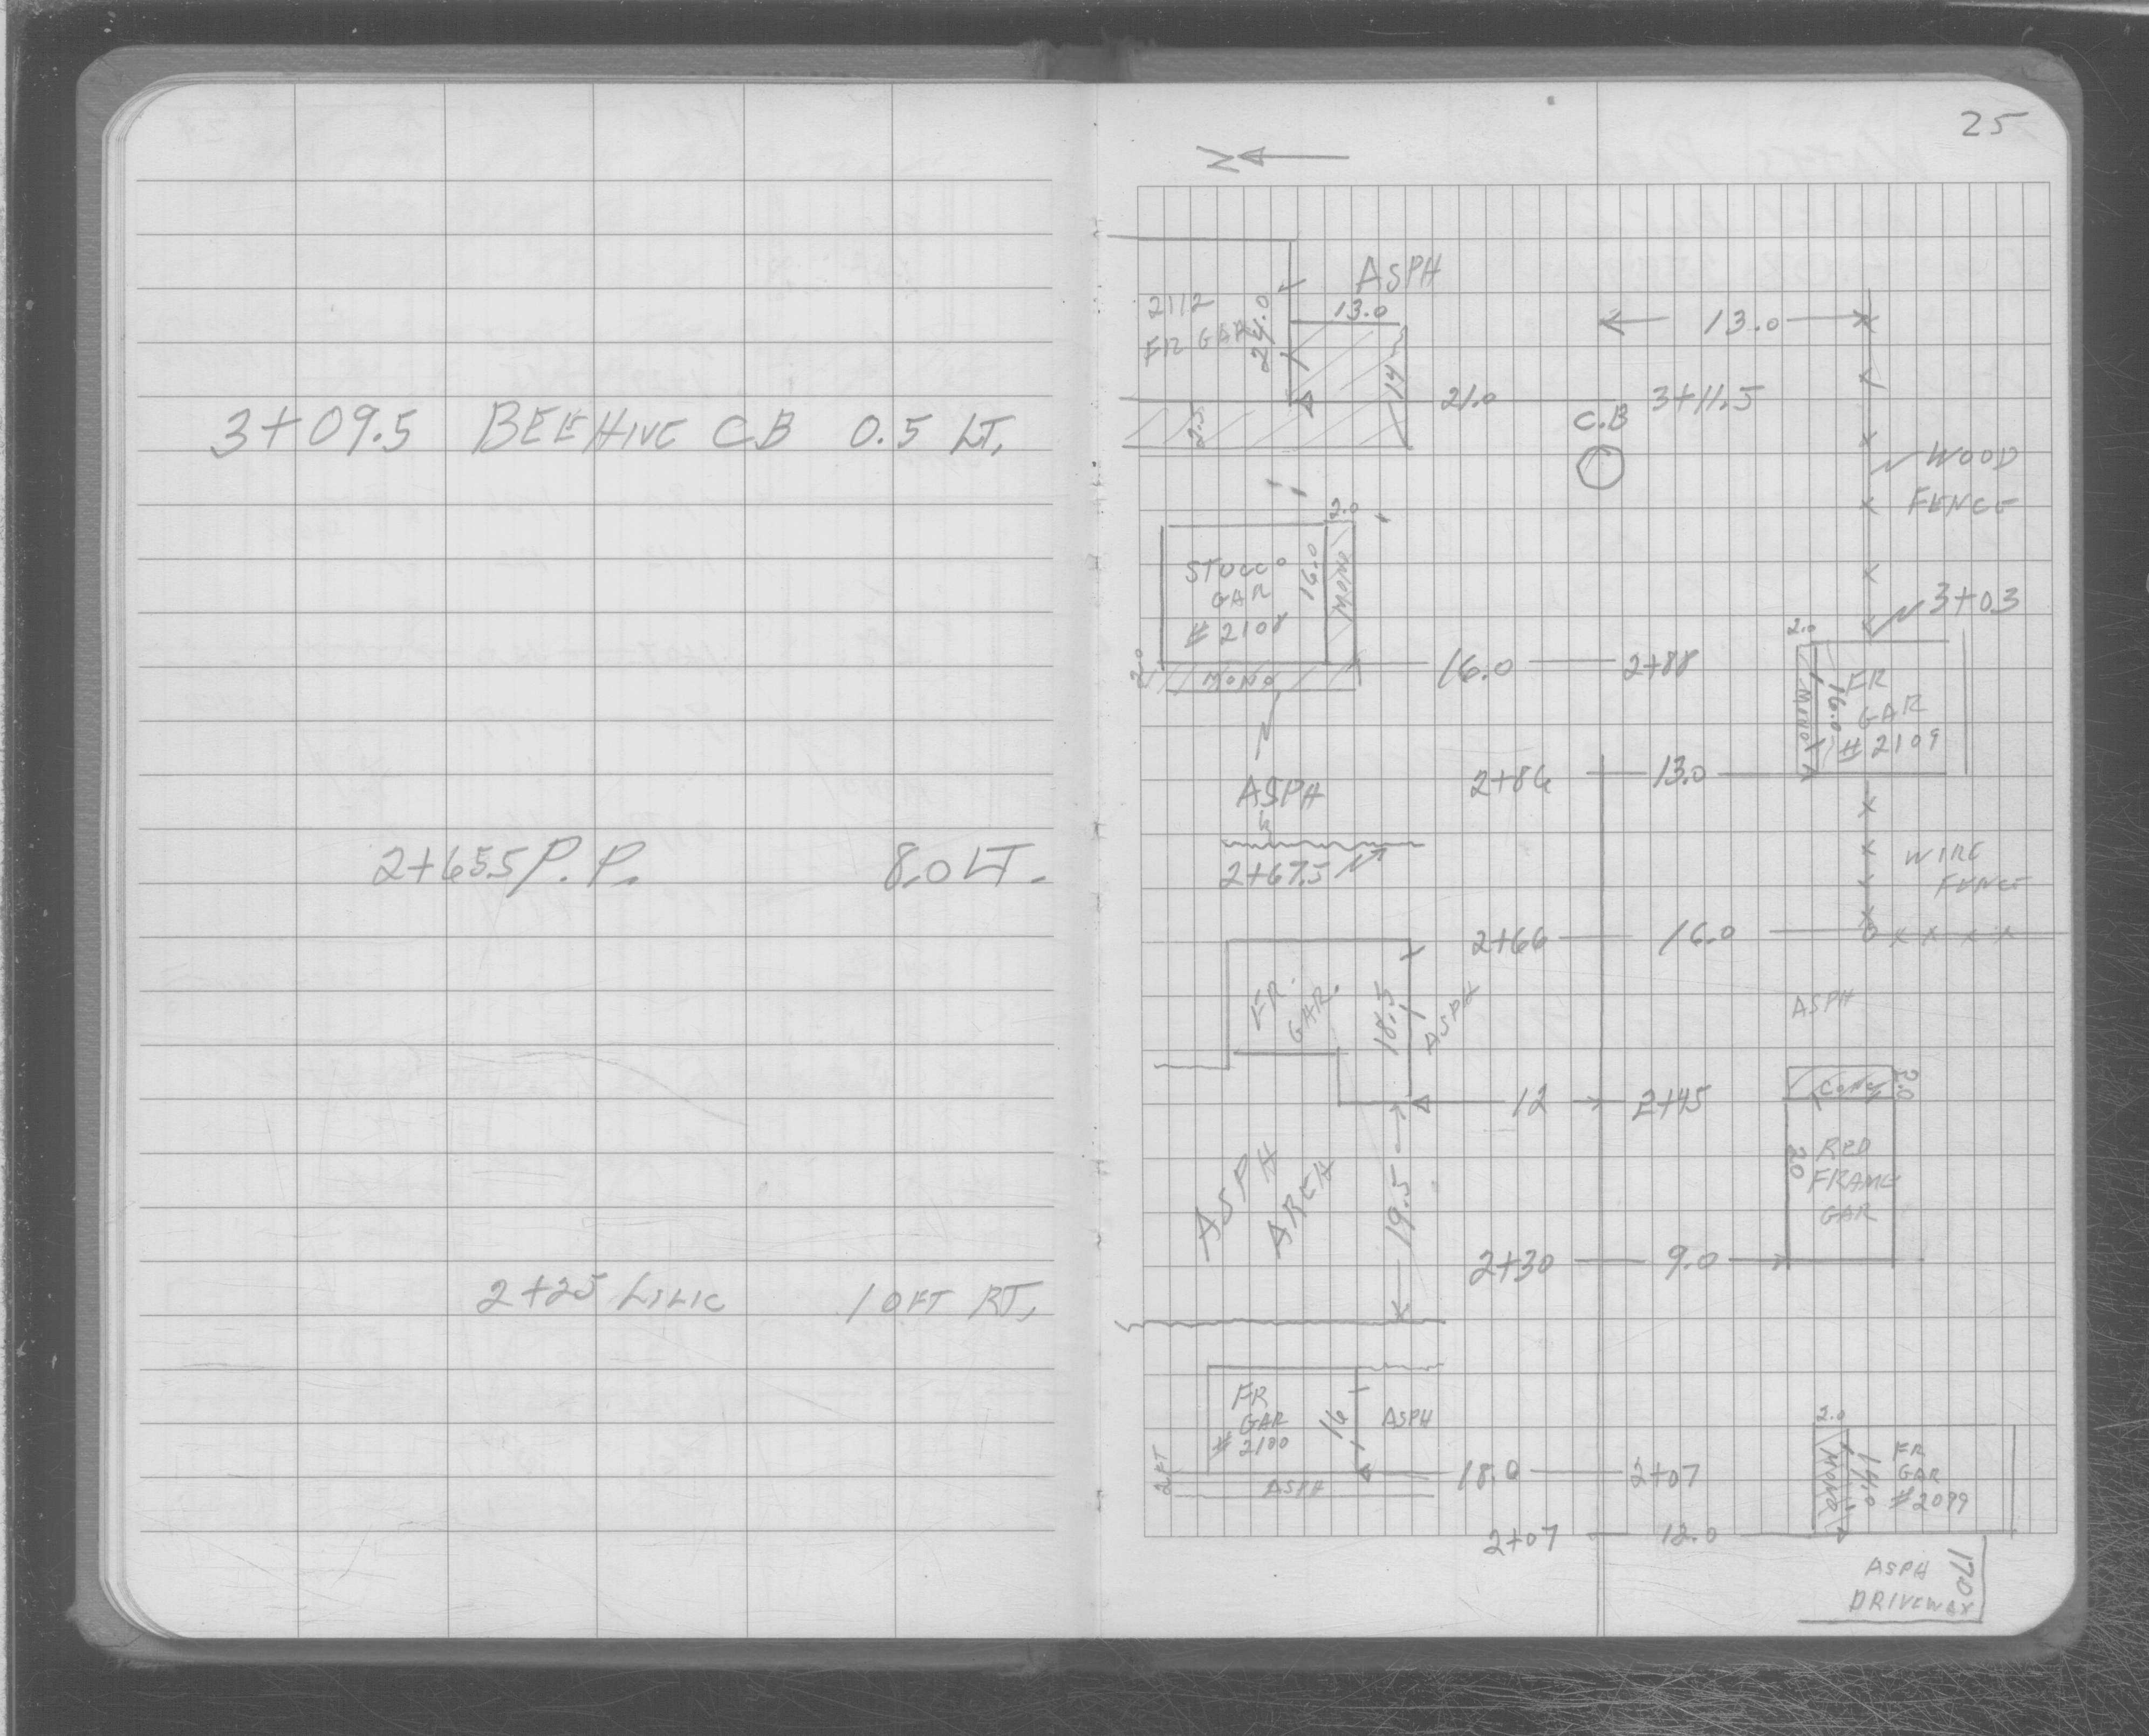 3+09.5 BEEHIVE CB 0.5 LT.
2+65.5 P.P. 8.0 LT.
2+25 LILIC 10FT RT.
25
N
ASPH
2112
FR GAR
24.0
13.0
14
2.5
13.0
21.0
3+11.5
C.B
WOOD
FENCE
2.0
STUCCO
GAR
#2108
16.0
MONO
2.0
MONO
16.0
2+88
3+03
2.0
MONO
16.0
FR
GAR
#2109
2+86
13.0
ASPH
2+67.5
WIRE
FENCE
2+66
16.0
FR.
GAR.
18.5
ASPH
ASPH
12
2+45
CONC
2.0
20
RED
FRAME
GAR
ASPH
AREA
19.5
2+30
9.0
FR
GAR
#2100
16
ASPH
2FT
ASPH
18.0
2+07
2.0
MONO
14.0
FR
GAR
#2099
2+07
12.0
ASPH
DRIVEWAY
17.0